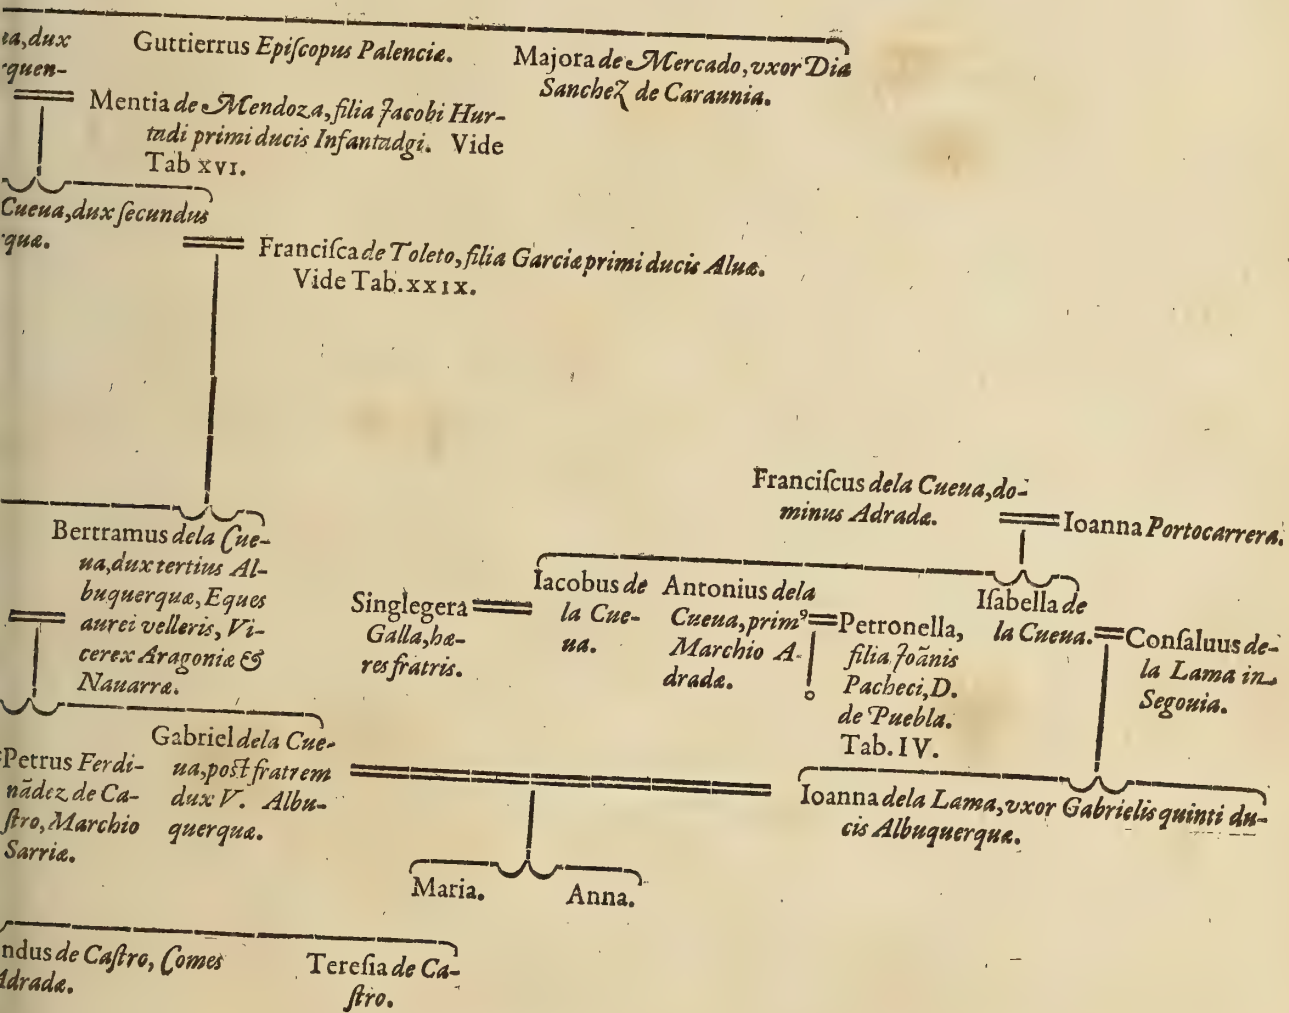 ua, dux
quen-
Guttierrus Epiſcopus Palenciæ.
Majora de Mercado, vxor Dia
Sanchez de Caraunia.
Mentia de Mendoza, filia Jacobi Hur-
tadi primi ducis Infantadgi. Vide
Tab XVI.
Cueua, dux ſecundus
quæ.
Franciſca de Toleto, filia Garciæ primi ducis Aluæ.
Vide Tab. XXIX.
Franciſcus dela Cueua, do-
minus Adradæ.
Ioanna Portocarrera.
Bertramus dela Cue-
ua, dux tertius Al-
buquerquæ, Eques
aurei velleris, Vi-
cerex Aragoniæ &
Nauarræ.
Singlegera
Galla, hæ-
res fratris.
Iacobus de
la Cue-
ua.
Antonius dela
Cueua, primꝰ
Marchio A-
dradæ.
Petronella,
filia Joãnis
Pacheci, D.
de Puebla.
Tab. IV.
Iſabella de
la Cueua.
Conſaluus de-
la Lama in
Segouia.
Petrus Ferdi-
nãdez de Ca-
ſtro, Marchio
Sarriæ.
Gabriel dela Cue-
ua, poſt fratrem
dux V. Albu-
querquæ.
Ioanna dela Lama, vxor Gabrielis quinti du-
cis Albuquerquæ.
Maria.
Anna.
ndus de Caſtro, Comes
Adradæ.
Tereſia de Ca-
ſtro.